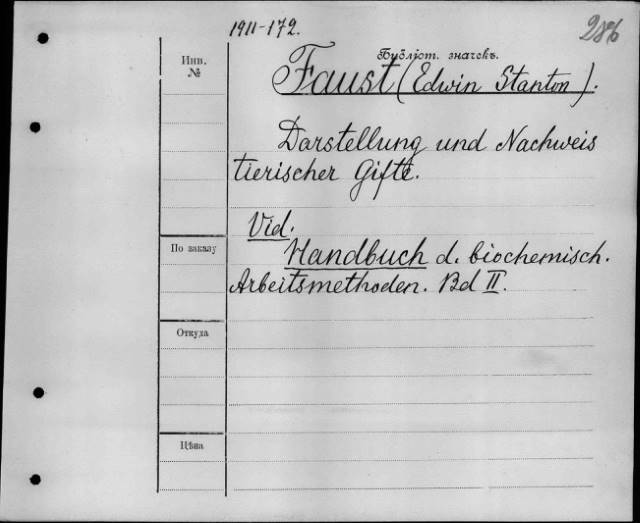 1911-172.
286
Инв.
№
Библіот. значекъ.
Faust (Edwin Stanton).
Darstellung und Nachweis
tierischer Gifte.
Vid.
По заказу
Handbuch d. biochemisch.
Arbeitsmethoden. Bd II.
Откуда
Цѣна